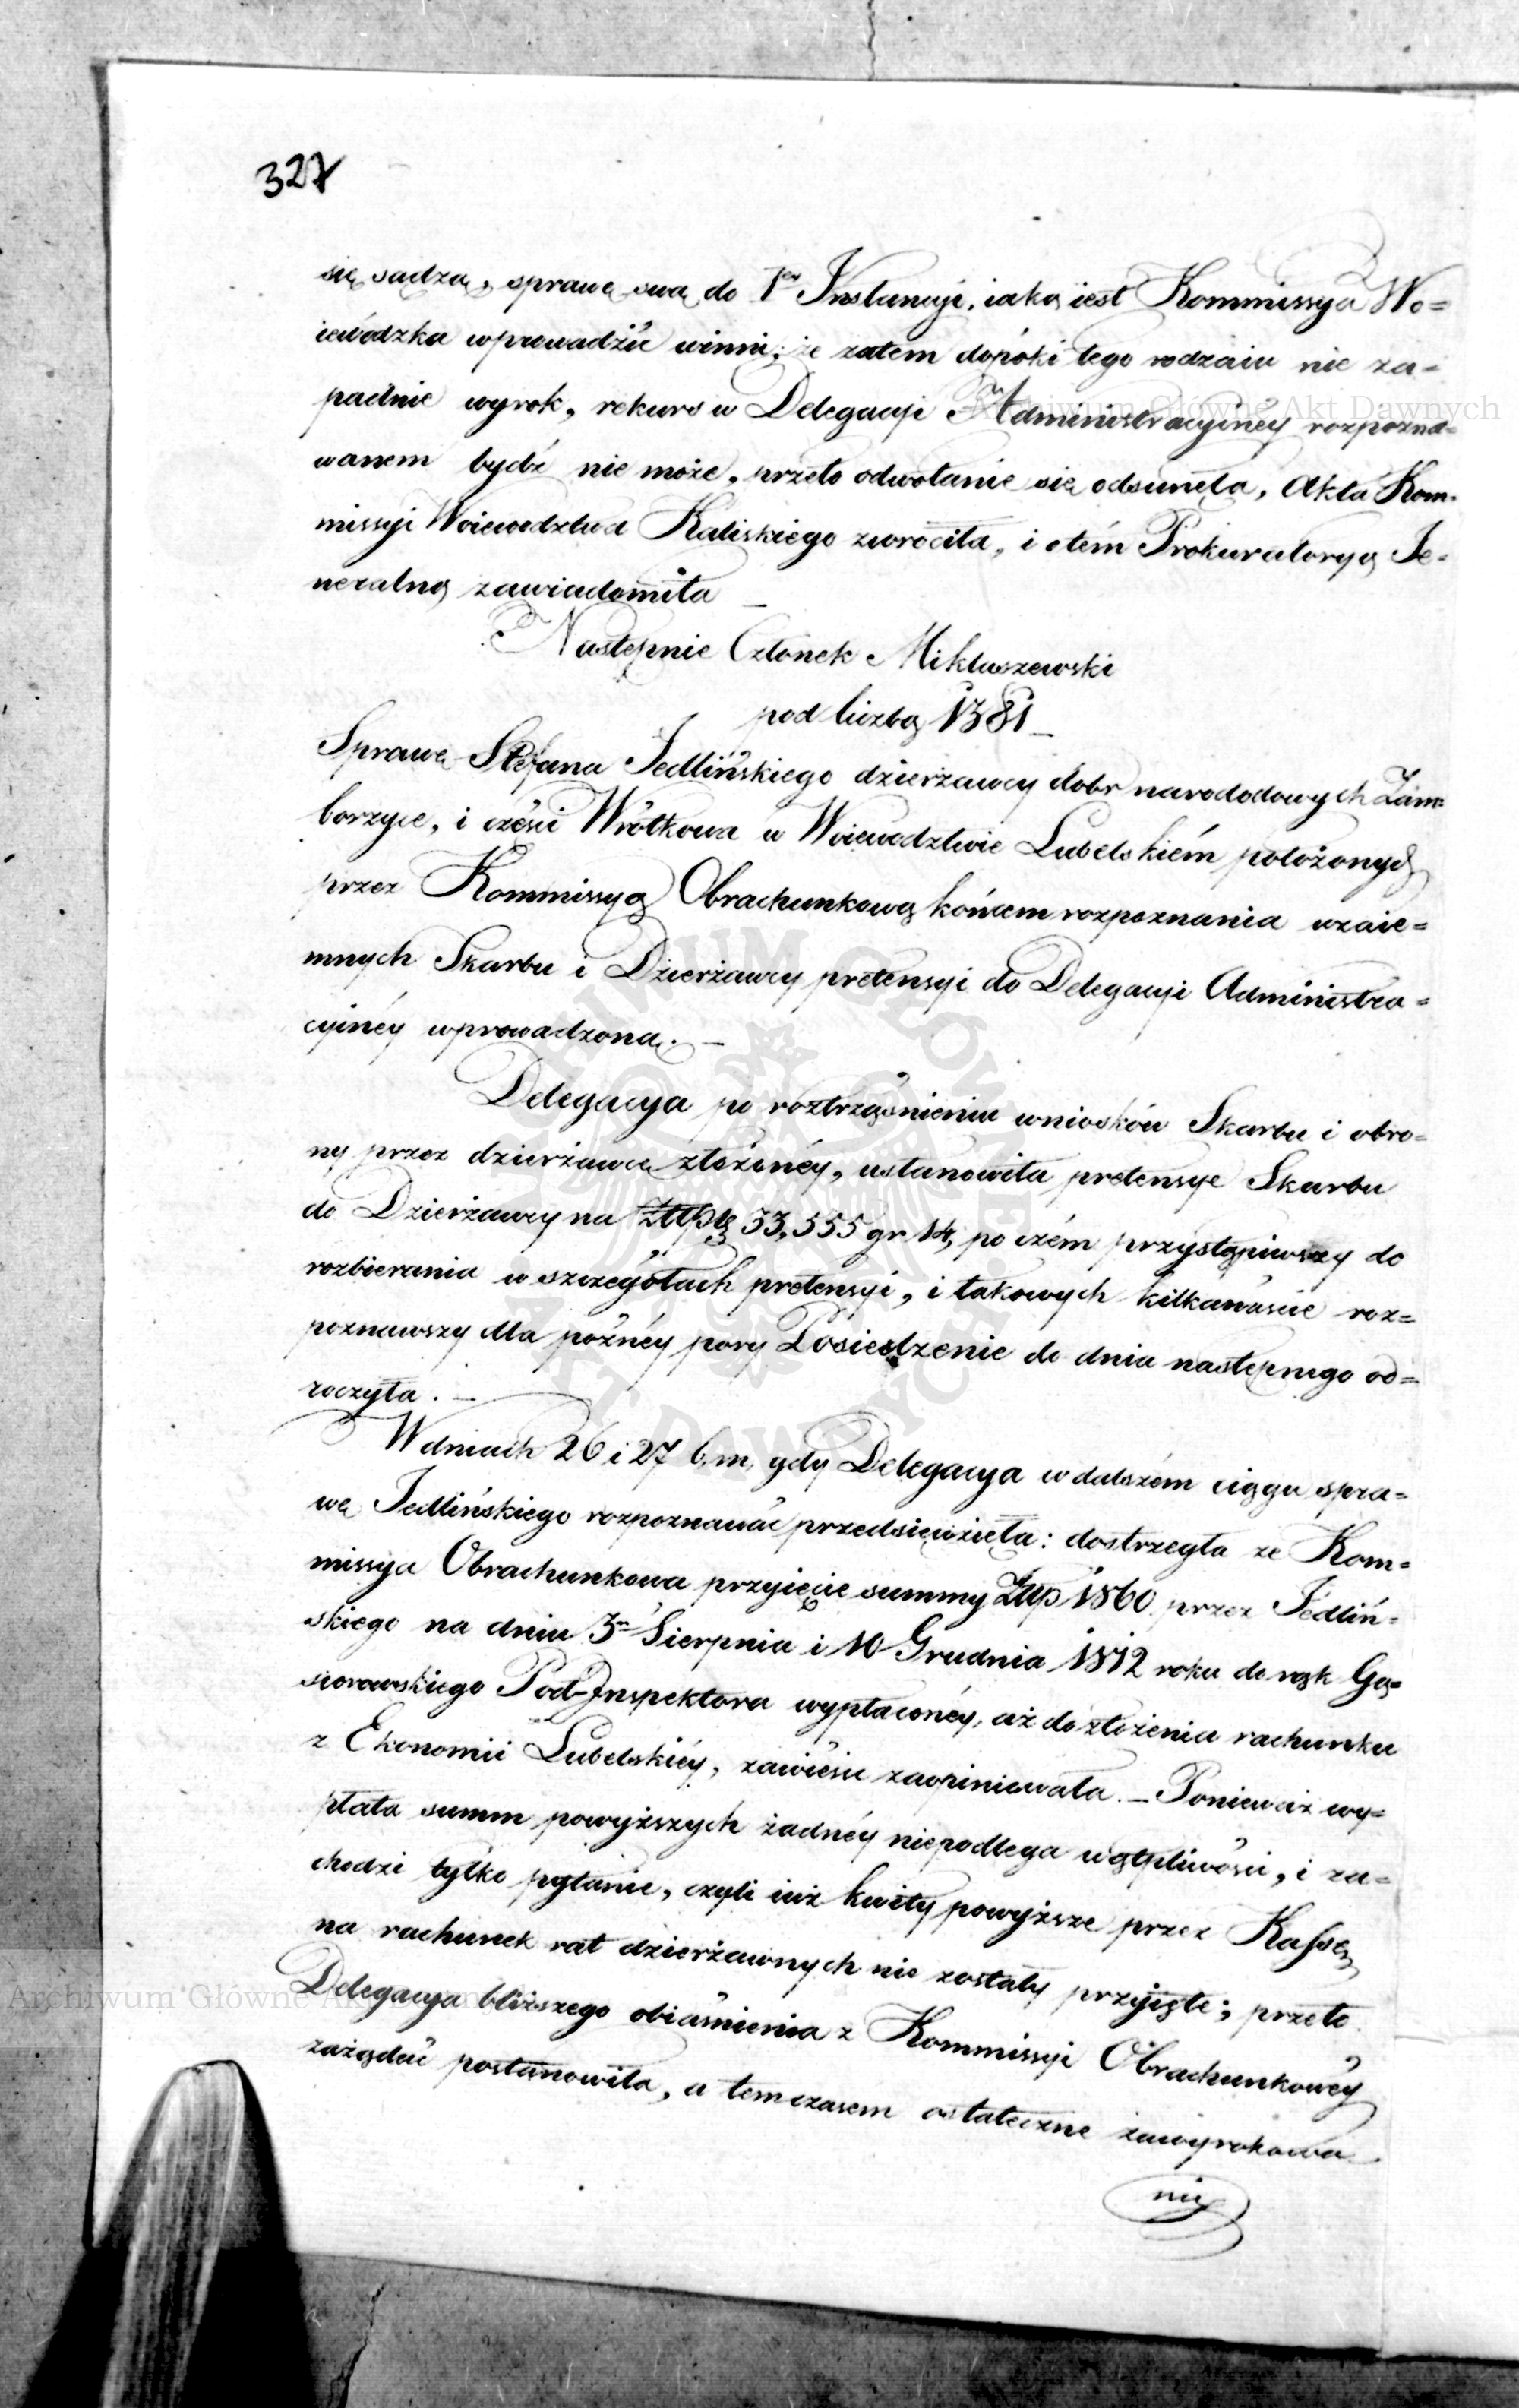 327
się sądzą, sprawę swą do 1ey Instancji, iaką iest Kommissya Wo=
iewódzka wprowadzić winni; że zatem dopóki tego rodzaiu nie za=
padnie wyrok, rekurs w Delegacyi Administracyinéy rozpozna=
wanem bydź nie może, przeto odwołanie się odsunęła, Akta Kom=
missyi Woiewodztwa Kaliskiego zwróciła, i otém Prokuratoryą Je=
neralną zawiadomiła _
Następnie Członek Mikłaszewski
pod liczbą 1381 _
Sprawę Stefana Jedlińskiego dzierżawcy dobr narododowych Zem=
borzyce, i części Wrotkowa w Woiewodztwie Lubelskiém położonych
przez Kommissyą Obrachunkową końcem rozpoznania wzaie=
mnych Skarbu i Dzierżawcy pretensyi do Delegacyi Administra=
cyinéy wprowadzoną. _
Delegacya po roztrząśnieniu wniosków Skarbu i obro=
ny przez dzierżawcę złożonéy, ustanowiła pretensye Skarbu
do Dzierżawcy na złtp. 33,555 gr 14, po czém przystąpiwszy do
rozbierania w szczegółach pretensyi, i takowych kilkanaście roz=
poznawszy dla poźnéy pory Posiedzenie do dnia następnego od=
roczyła. _
W dniach 26 i 27 b.m. gdy Delegacya w dalszém ciągu spra=
wę Jedlińskiego rozpoznawać przedsięwzięła: dostrzegła że Kom=
missya Obrachunkowa przyięcie summy Złtp 1560 przez Jedliń=
skiego na dniu 3m Sierpnia i 10 Grudnia 1812 roku do rąk Gą=
siorowskiego Pod-Inspektora wypłaconéy, aż do złożenia rachunku
z Ekonomii Lubelskiéy, zawiesić zaopiniowała. _ Ponieważ wy=
płata summ powyższych żadnéy niepodlega wątpliwości, i za=
chodzi tylko pytanie, czyli iuż kwity powyższe przez Kassę
na rachunek rat dzierżawnych nie zostały przyięte; przeto
Delegacya bliższego obiaśnienia z Kommissyi Obrachunkowéy
zażądać postanowiła, a tem czasem ostateczne zawyrokowa
nie
Archiwum Główne Akt Dawnych